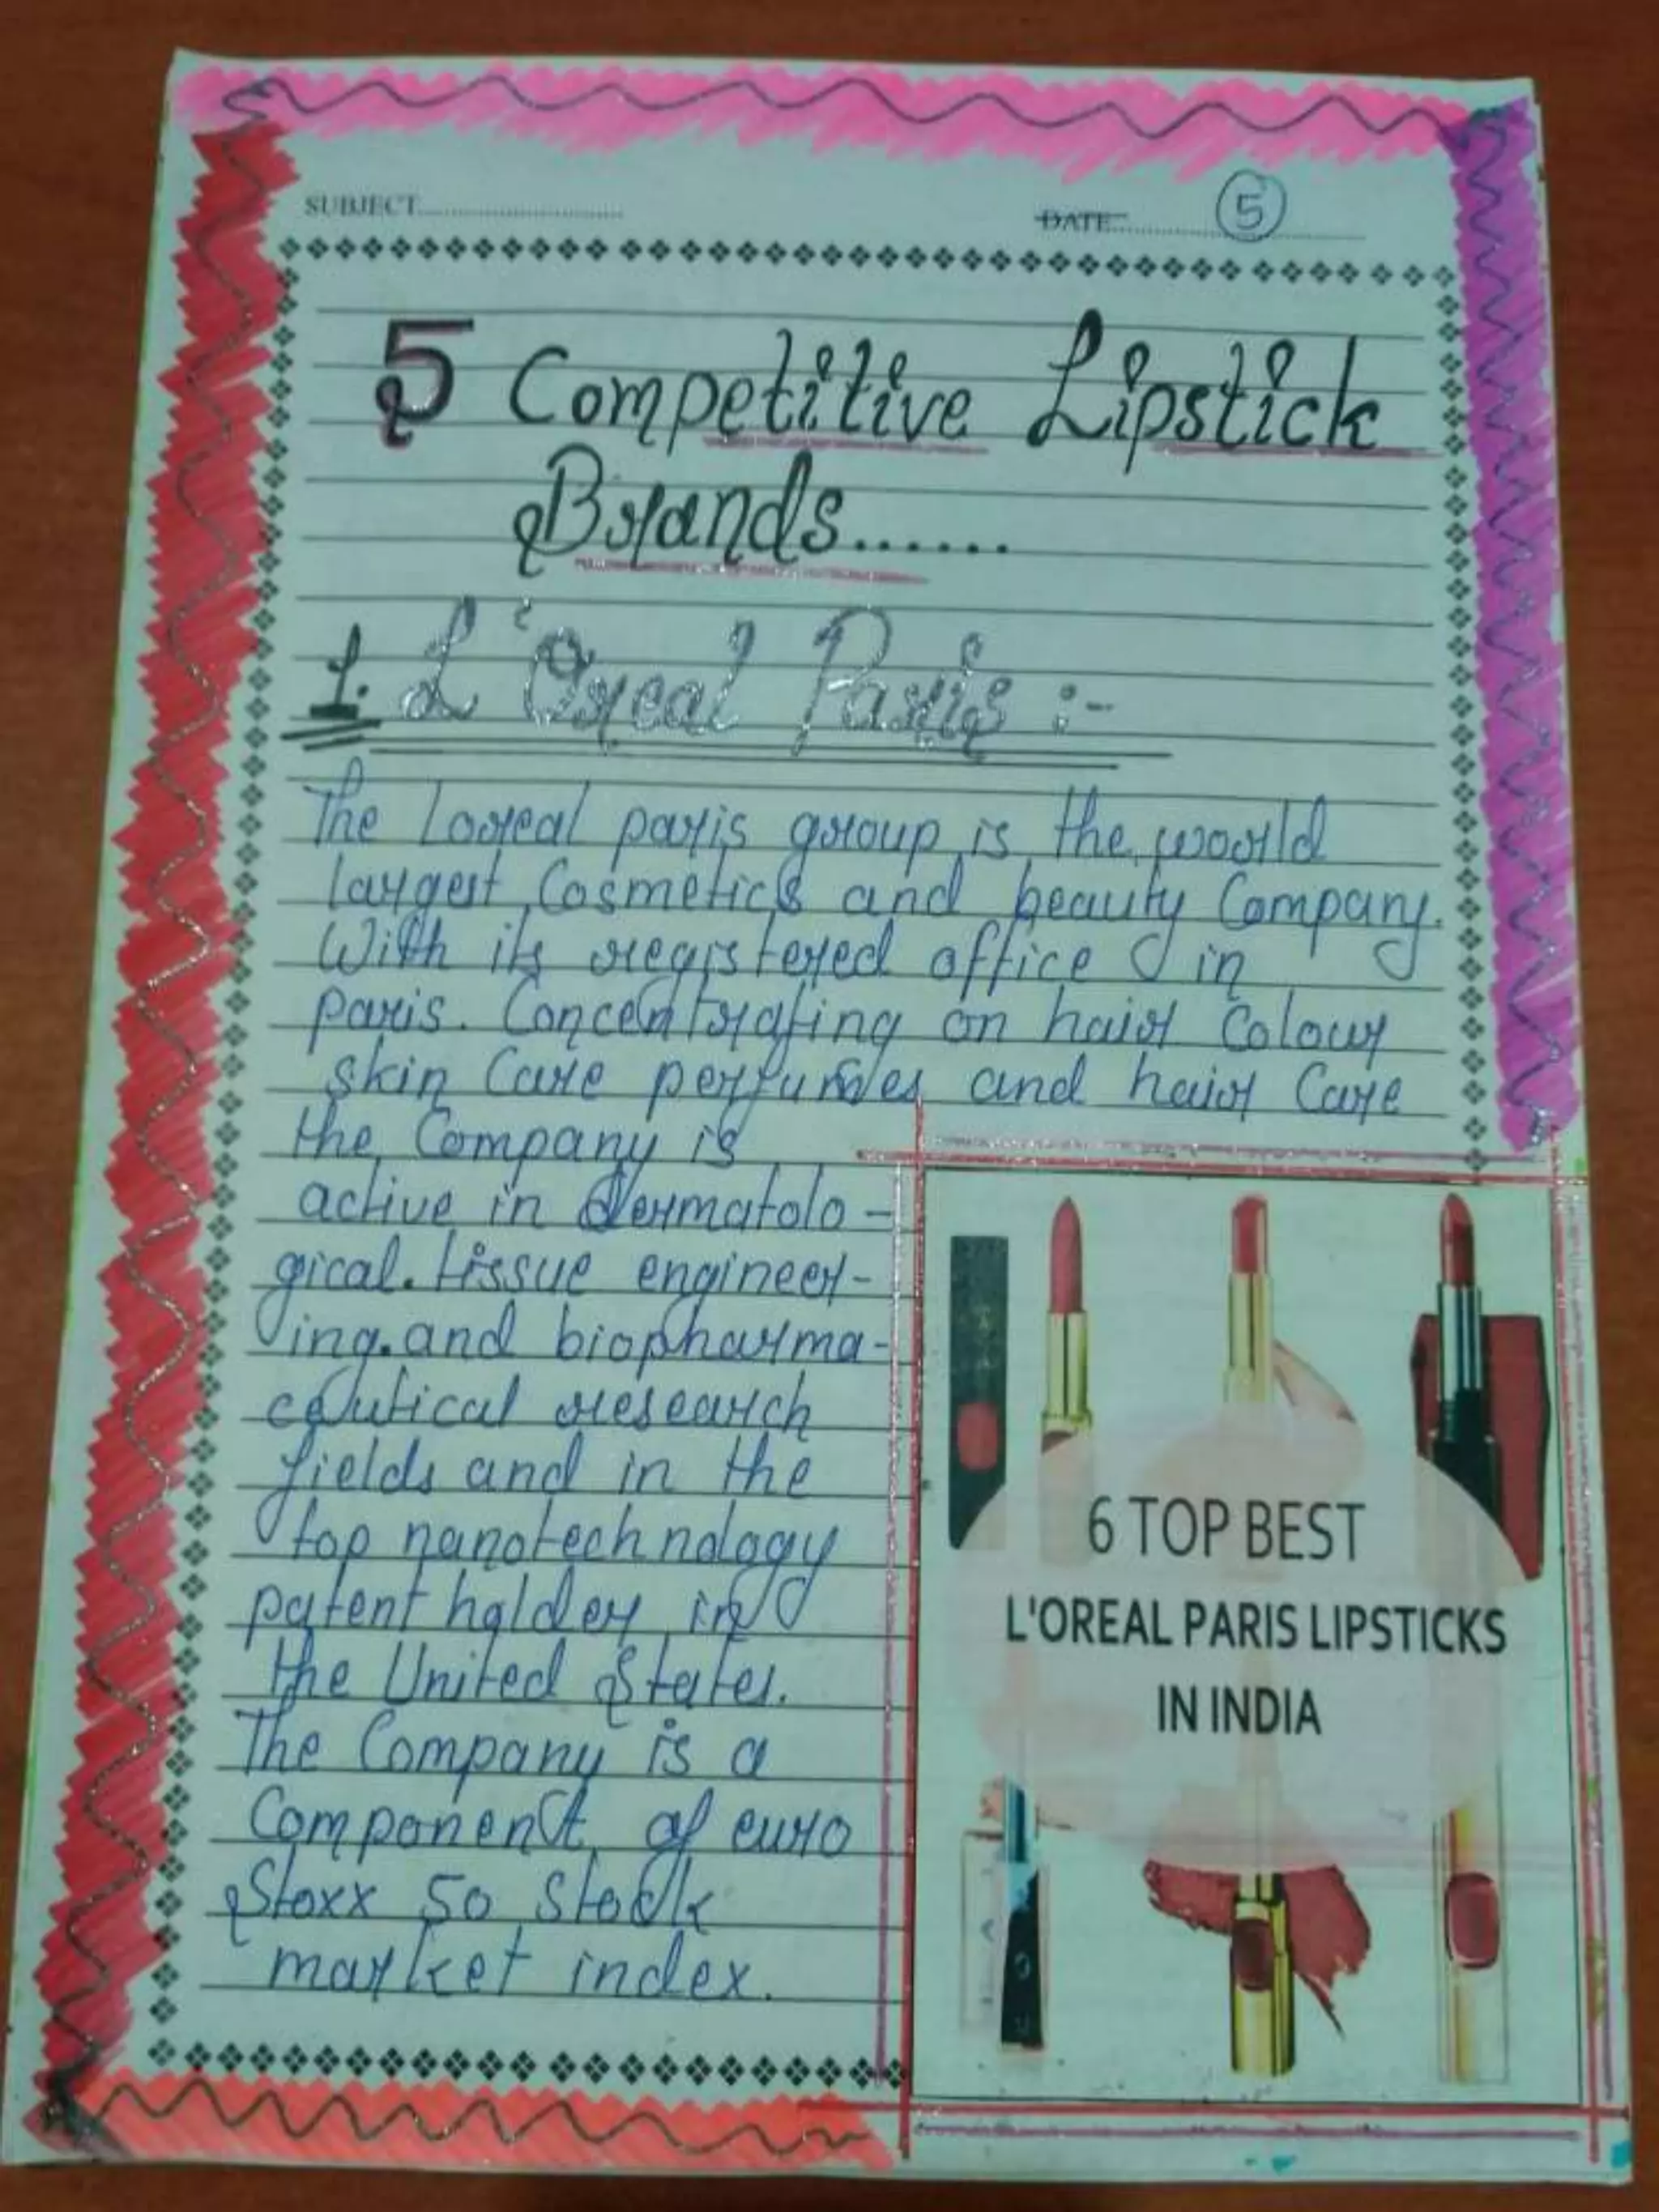 SUBJECT
DATE 5
5 Competitive Lipstick
Brands......
1. L'Oreal Paris :-
The Loreal paris group is the world
largest Cosmetics and beauty Company.
With its registered office in
paris. Concentrating on hair Colour
skin Care perfumes and hair Care
the Company is
active in dermatolo-
gical. tissue engineer-
ing. and biopharma-
ceutical research
fields and in the
top nanotechnology
patent holder in
the United States.
The Company is a
Component of euro
Stoxx 50 Stock
market index.
6 TOP BEST
L'OREAL PARIS LIPSTICKS
IN INDIA